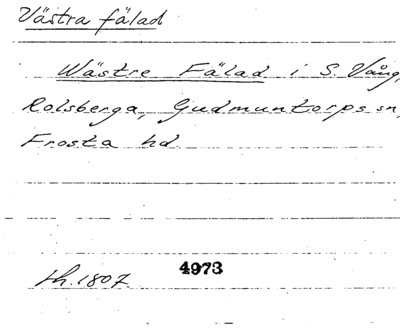 Västra fälad
Wästre Fälad i S. Vång,
Rolsberga, Gudmuntorps sn,
Frosta hd.
4973
Lh. 1807